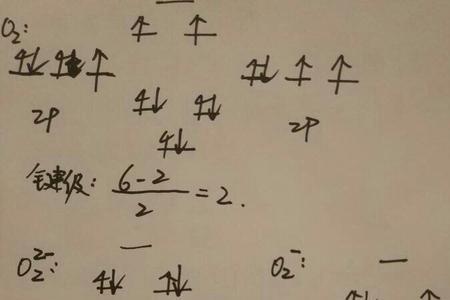 O₂:
↑ ↑
↑↓ ↑↓ ↑
↑↓ ↑ ↑
↑↓ ↑↓
2P
2P
↑↓
键级: (6-2)/2 = 2.
O₂²⁻:
O₂⁻:
↑↓ ↑↓
↑↓ ↑